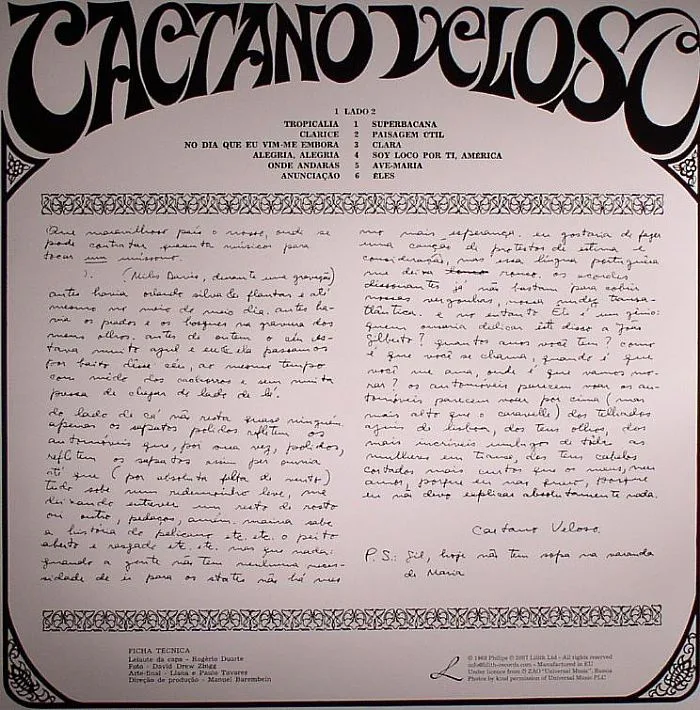 CAETANO VELOSO
1 LADO 2
TROPICALIA 1 SUPERBACANA
CLARICE 2 PAISAGEM ÚTIL
NO DIA QUE EU VIM-ME EMBORA 3 CLARA
ALEGRIA, ALEGRIA 4 SOY LOCO POR TI, AMÉRICA
ONDE ANDARAS 5 AVE-MARIA
ANUNCIAÇÃO 6 ÊLES
Que maravilhoso país o nosso, onde se
pode contratar quarenta músicos para
tocar um uníssono.
). (Miles Davis, durante uma gravação)
antes havia orlando silva & flautas e até
mesmo no meio do meio dia. antes ha-
via os prados e os bosques na gravura dos
meus olhos. antes de ontem o céu es-
tava muito azul e eu e ela passamos
por baixo desse céu, ao mesmo tempo
com medo dos cachorros e sem muita
pressa de chegar do lado de lá.
do lado de cá não resta quase ninguém.
apenas os sapatos polidos refletem os
automóveis que, por sua vez, polidos,
refletem os sapatos assim per omnia
até que (por absoluta falta de vento)
tudo sobe num redemoinho leve, me
deixando entrever um resto de rosto
ou outro, pedaços, amém. maina sabe
a história do pelicano etc. etc. o peito
aberto e rasgado etc. etc. mas que nada:
quando a gente não tem nenhuma neces-
sidade de ir para os states não há mes
mo mais esperança. eu gostaria de fazer
uma canção de protesto de estima e
consideração, mas essa língua portuguêsa
me deixa rouco. os acordes
dissonantes já não bastam para cobrir
nossas vergonhas, nossa nudez transa-
tlântica. e no entanto Êle é um gênio:
quem ousaria dedicar êste disco a João
Gilberto? quantos anos você tem? como
é que você se chama, quando é que
você me ama, onde é que vamos mo-
rar? os automóveis parecem voar os au-
tomóveis parecem voar por cima (mas
mais alto que o caravelle) dos telhados
azuis de lisboa, dos teus olhos, dos
mais incríveis umbigos de tôdas as
mulheres em transe, dos teus cabelos
cortados mais curtos que os meus, meu
amor, porque eu não quero, porque
eu não devo explicar absolutamente nada.
Caetano Veloso.
P.S.: Gil, hoje não tem sopa na varanda
de Maria
FICHA TÉCNICA
Leiaute da capa - Rogério Duarte
Foto - David Drew Zingg
Arte-final - Liana e Paulo Tavares
Direção de produção - Manuel Barembein
© 1968 Philips © 2007 Lilith Ltd - All rights reserved
info@lilith-records.com - Manufactured in EU
Under licence from © ZAO "Universal Music", Russia
Photos by kind permission of Universal Music PLC